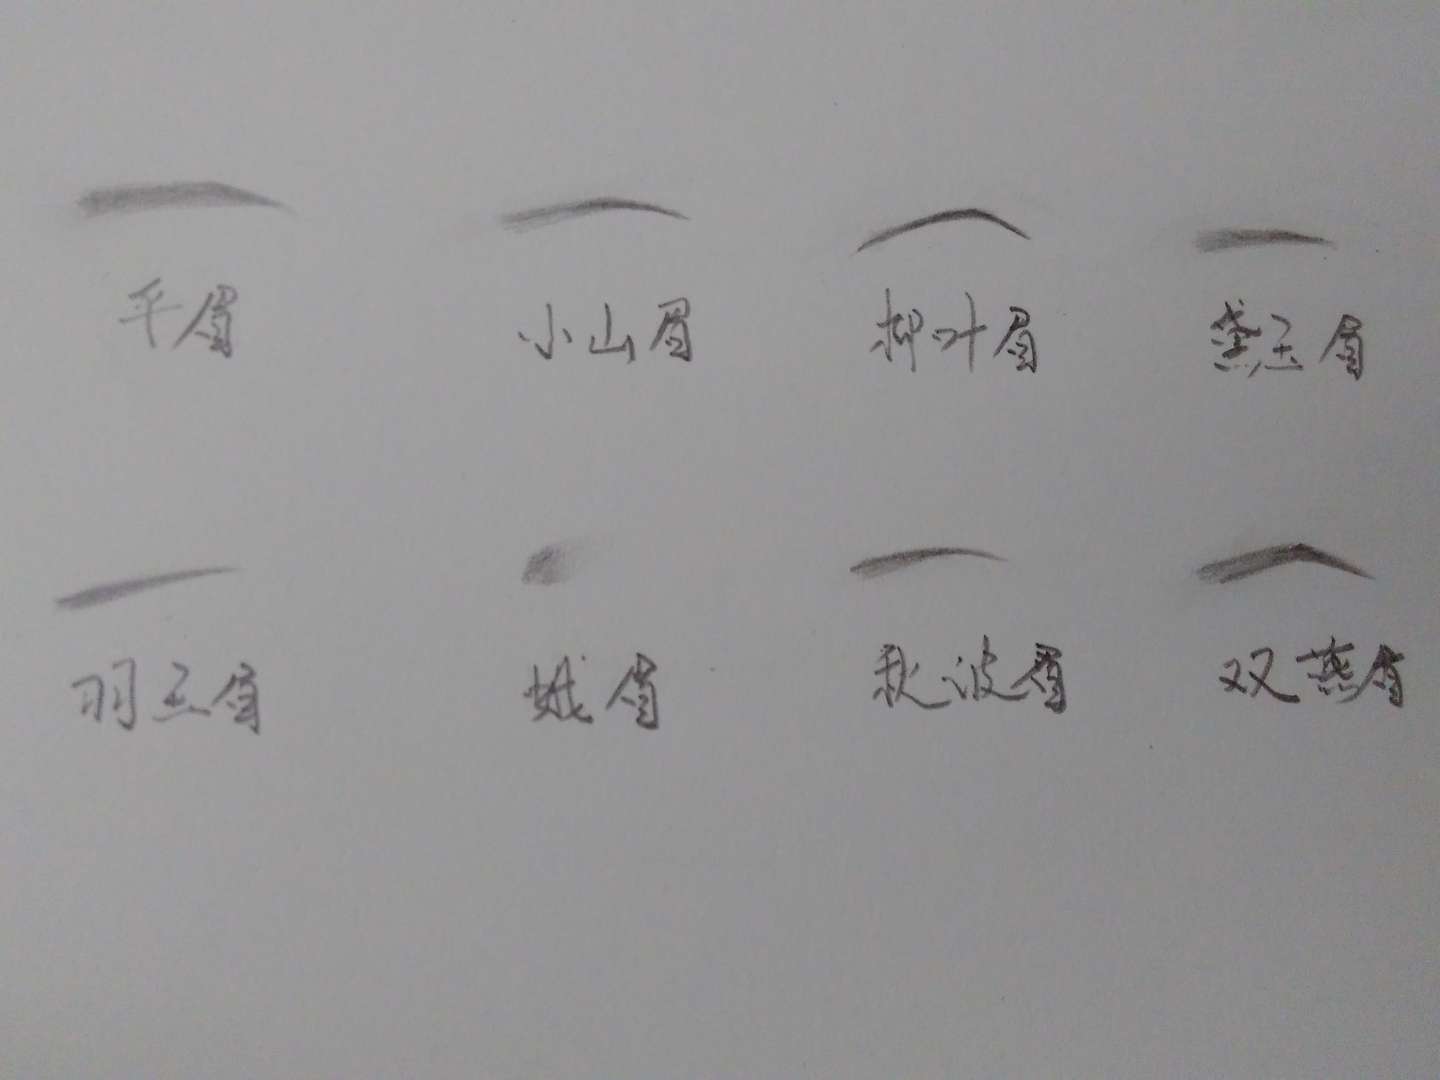 平眉 小山眉 柳叶眉 黛玉眉
羽玉眉 娥眉 秋波眉 双燕眉